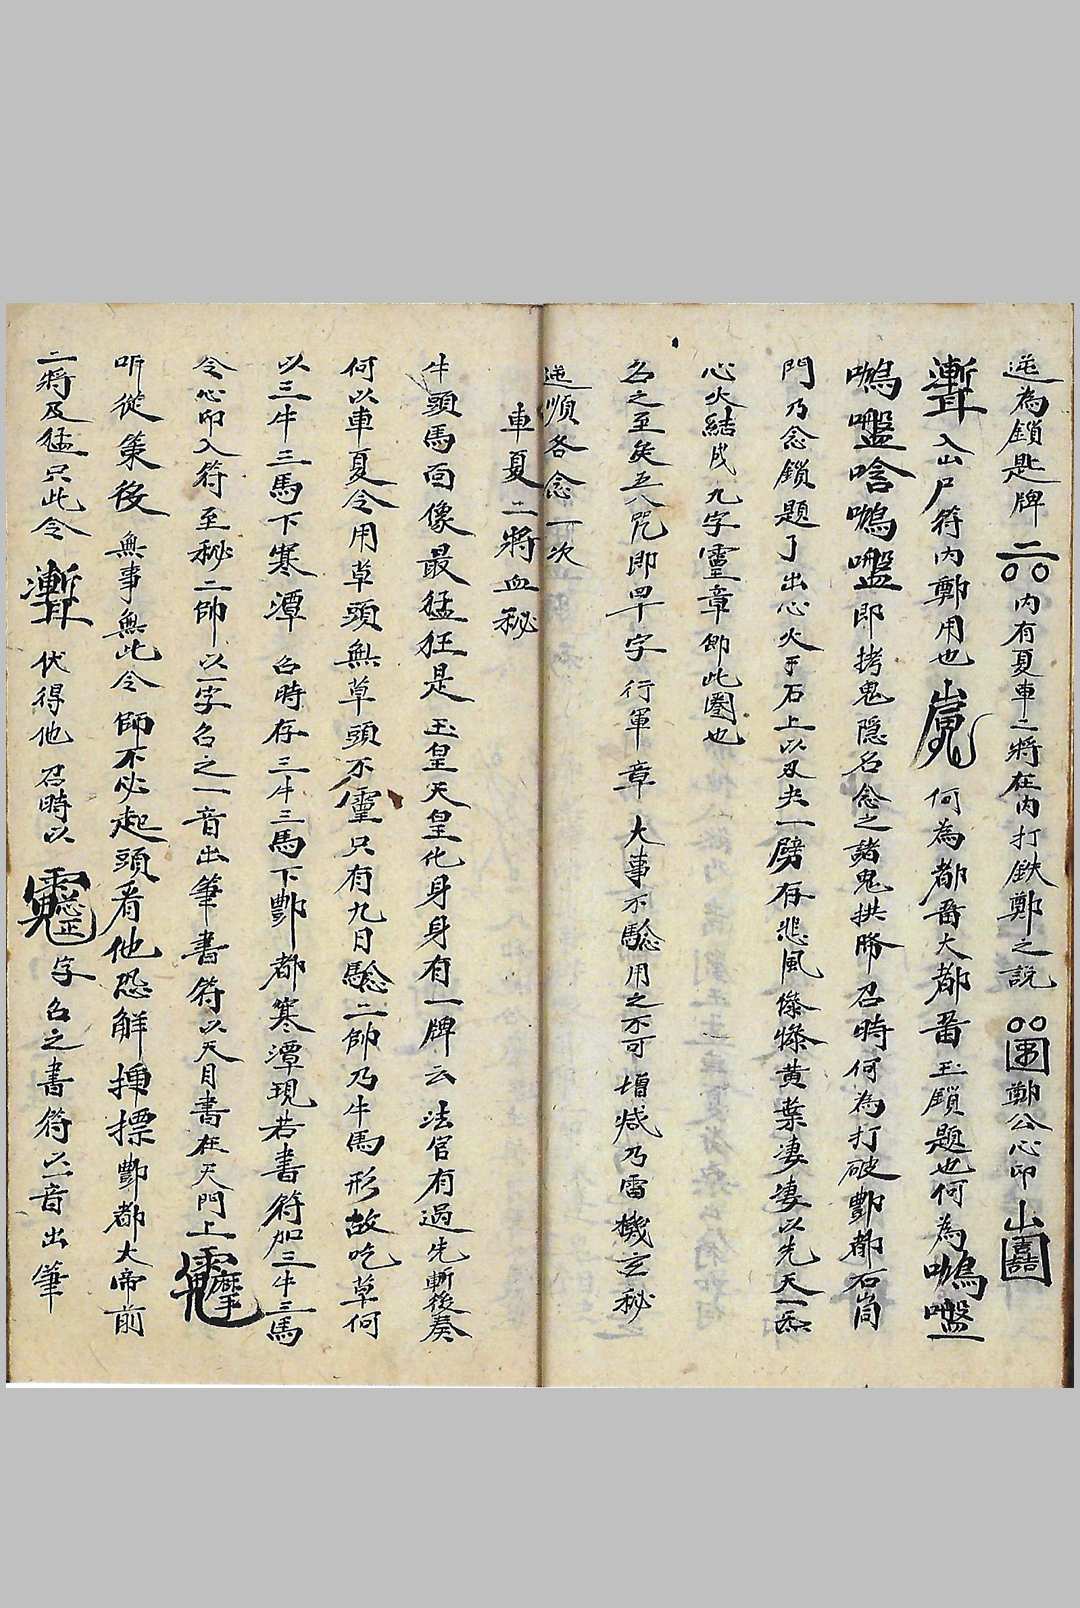 逆為鎖匙牌 內有夏車二將在內打鉄鄭之説 鄭公心印
入山尸符內鄭用也 何為都畨大都畨玉鎖題也何為
即拷鬼隠名念之諸鬼拱降召時何為打破酆都石崗
門乃念鎖題了出心火于石上以刄夫一劈存悲風慘慘黄葉凄凄以先天一炁
心火結成九字靈章即此圏也
名之至矣五八咒即甼字行軍章大事不驗用之不可增减乃雷機玄秘
逆順各念一次
車夏二將血秘
牛頭馬面像最猛狂是玉皇天皇化身身有一牌云法官有過先斬後奏
何以車夏令用草頭無草頭不靈只有九日驗二帥乃牛馬形故吃草何
以三牛三馬下寒潭召時存三牛三馬下酆都寒潭現若書符加三牛三馬
令心印入符至秘二帥以一字名之一音出筆書符以天目書在天門上
听從策役無事無此令師不必起頭看他恐觧揷摽酆都大帝前
二將及猛只此令 伏得他召時以 字名之書符以一音出筆